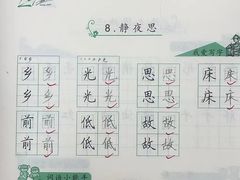 8.静夜思
我爱写字
乡乡 光光 思思 床床
乡乡 光光 思思 床床
前前 低低 故故
前前 低低 故故
词语小能手